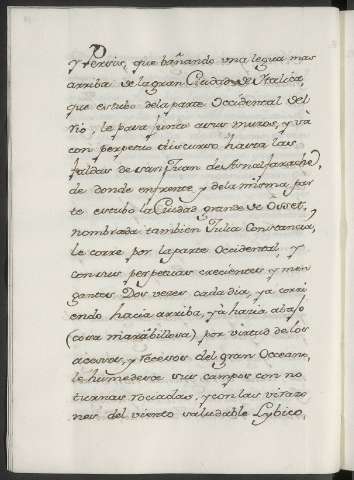 y Persio, que bañando una legua mas
arriba de la gran Ciudad de Italica,
que estubo dela parte Occidental del
rio, le pasa junto a sus muros, y va
con perpetuo discurso hasta las
faldas de san Juan de Asnalfarache,
de donde enfrente y dela misma par
te estubo la Ciudad grande de Osset,
nombrada tambien Julia Constancia,
le corre por la parte Occidental, y
con sus perpetuas crecientes y men
gantes Dos veces cada dia, ya corri
endo hacia arriba, ya hacia abajo
(cosa marabillosa) por virtud de los
acesos, y recesos del gran Occeano,
le humedese sus campos con no
turnas rociadas, y con las virazo
nes del viento saludable Lybico,